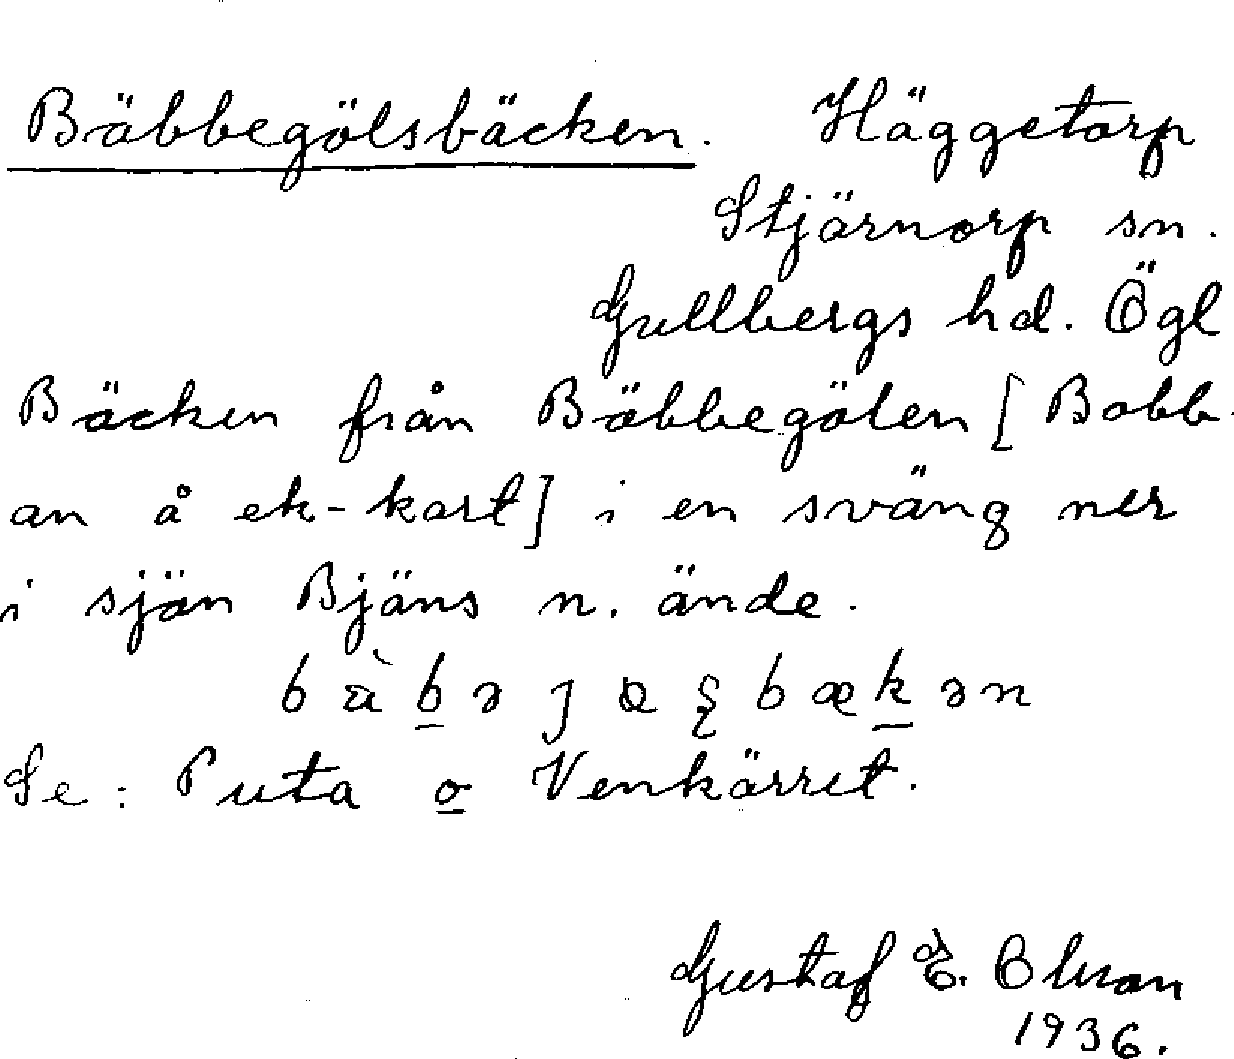 Bäbbegölsbäcken. Häggetorp
Stjärnorp sn.
Gullbergs hd. Ögl
Bäcken från Bäbbegölen [Bobb-
an å ek-kart] i en sväng ner
i sjön Bjäns n. ände.
Se: Puta o Venkärret.
Gustaf E. Olsson
1936.